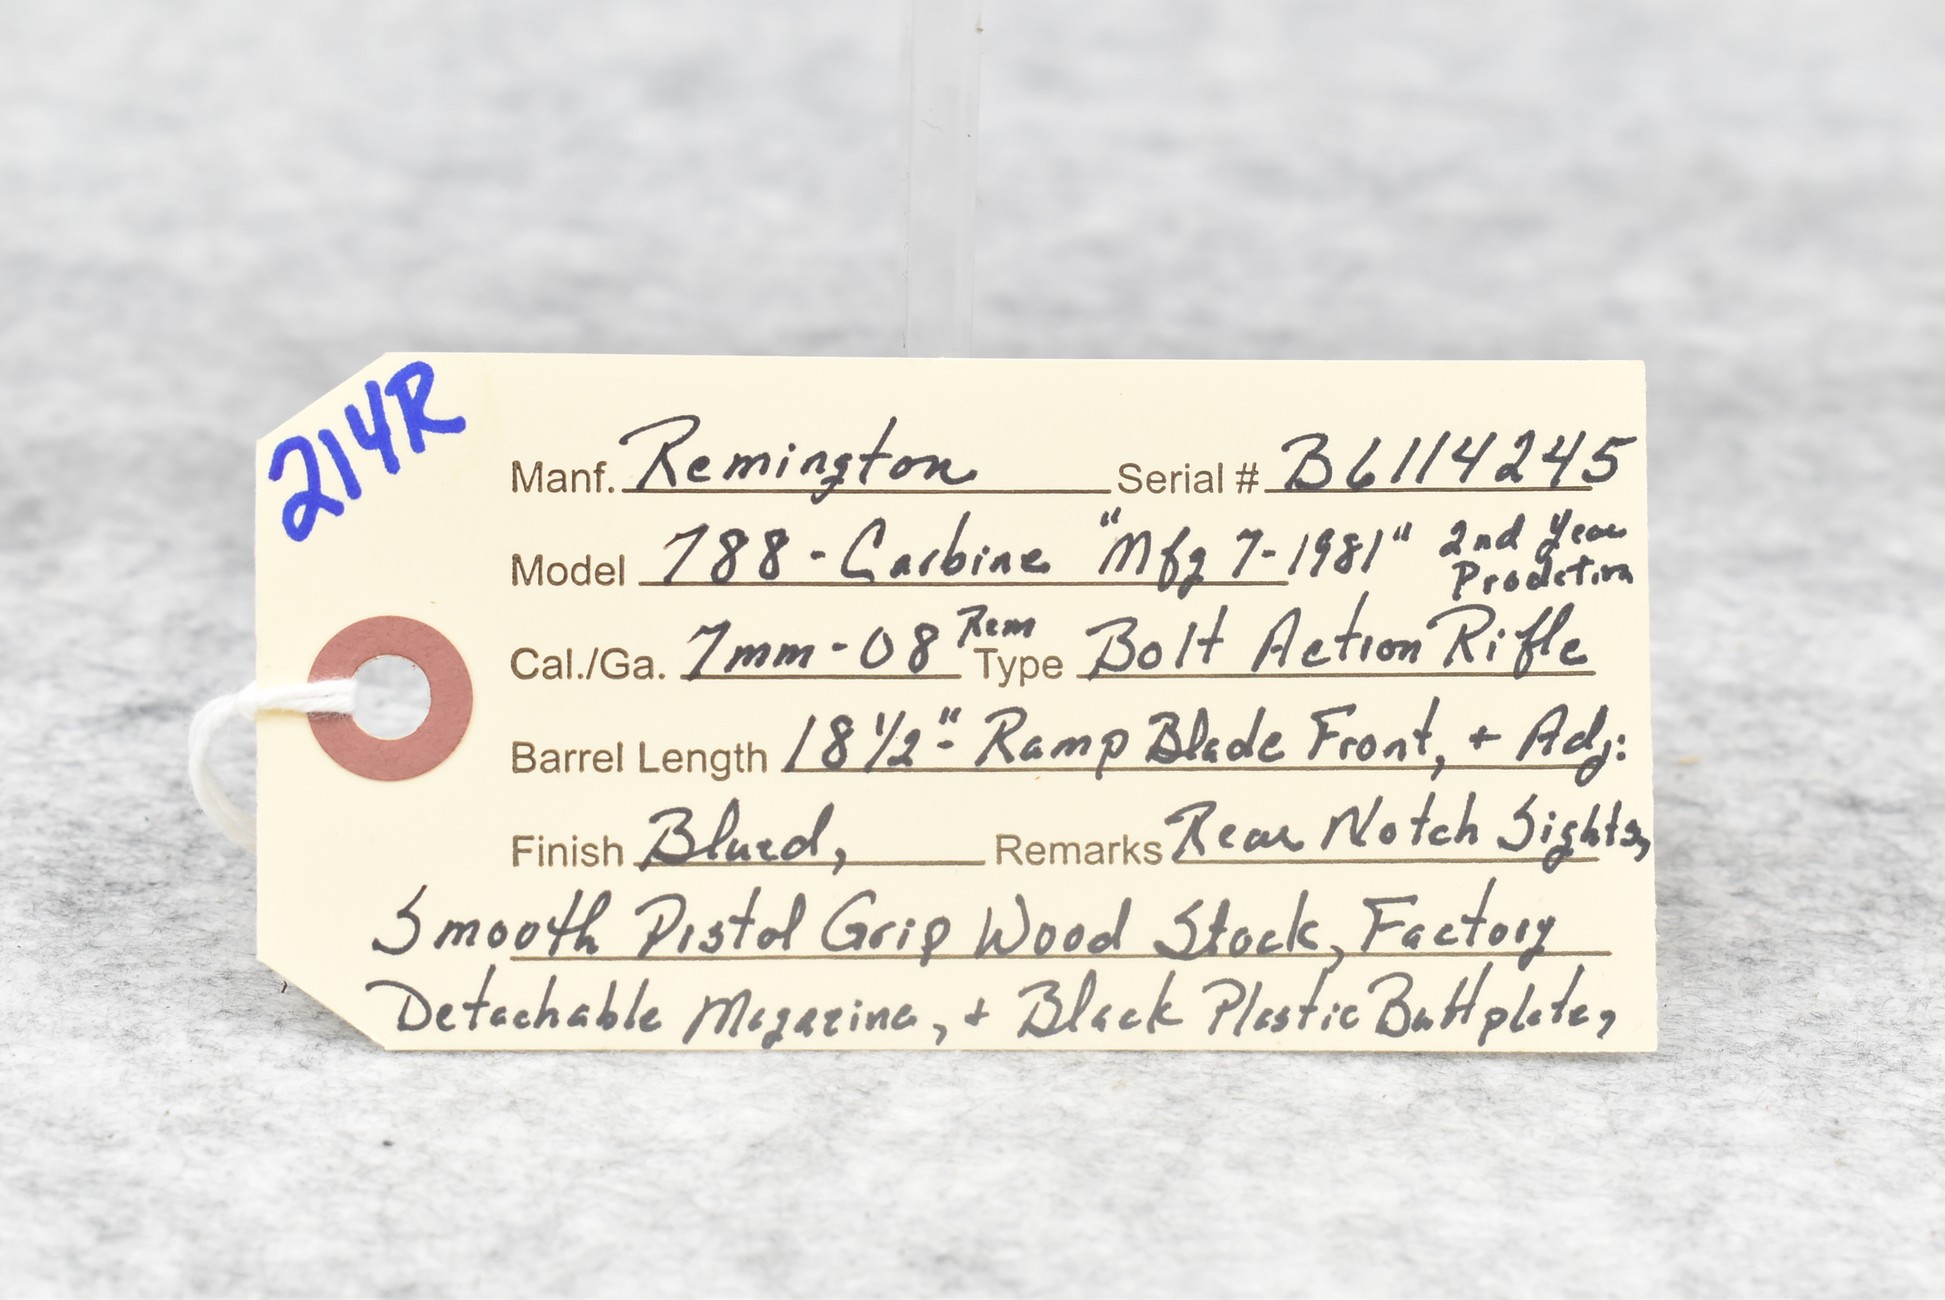 214R
Manf. Remington Serial # B6114245
Model 788 - Carbine "Mfg 7-1981" 2nd Year
Prodction
Cal./Ga. 7mm-08 Rem Type Bolt Action Rifle
Barrel Length 18 1/2"- Ramp Blade Front, + Adj:
Finish Blued, Remarks Rear Notch Sights,
Smooth Pistol Grip Wood Stock, Factory
Detachable Magazine, + Black Plastic Buttplate,